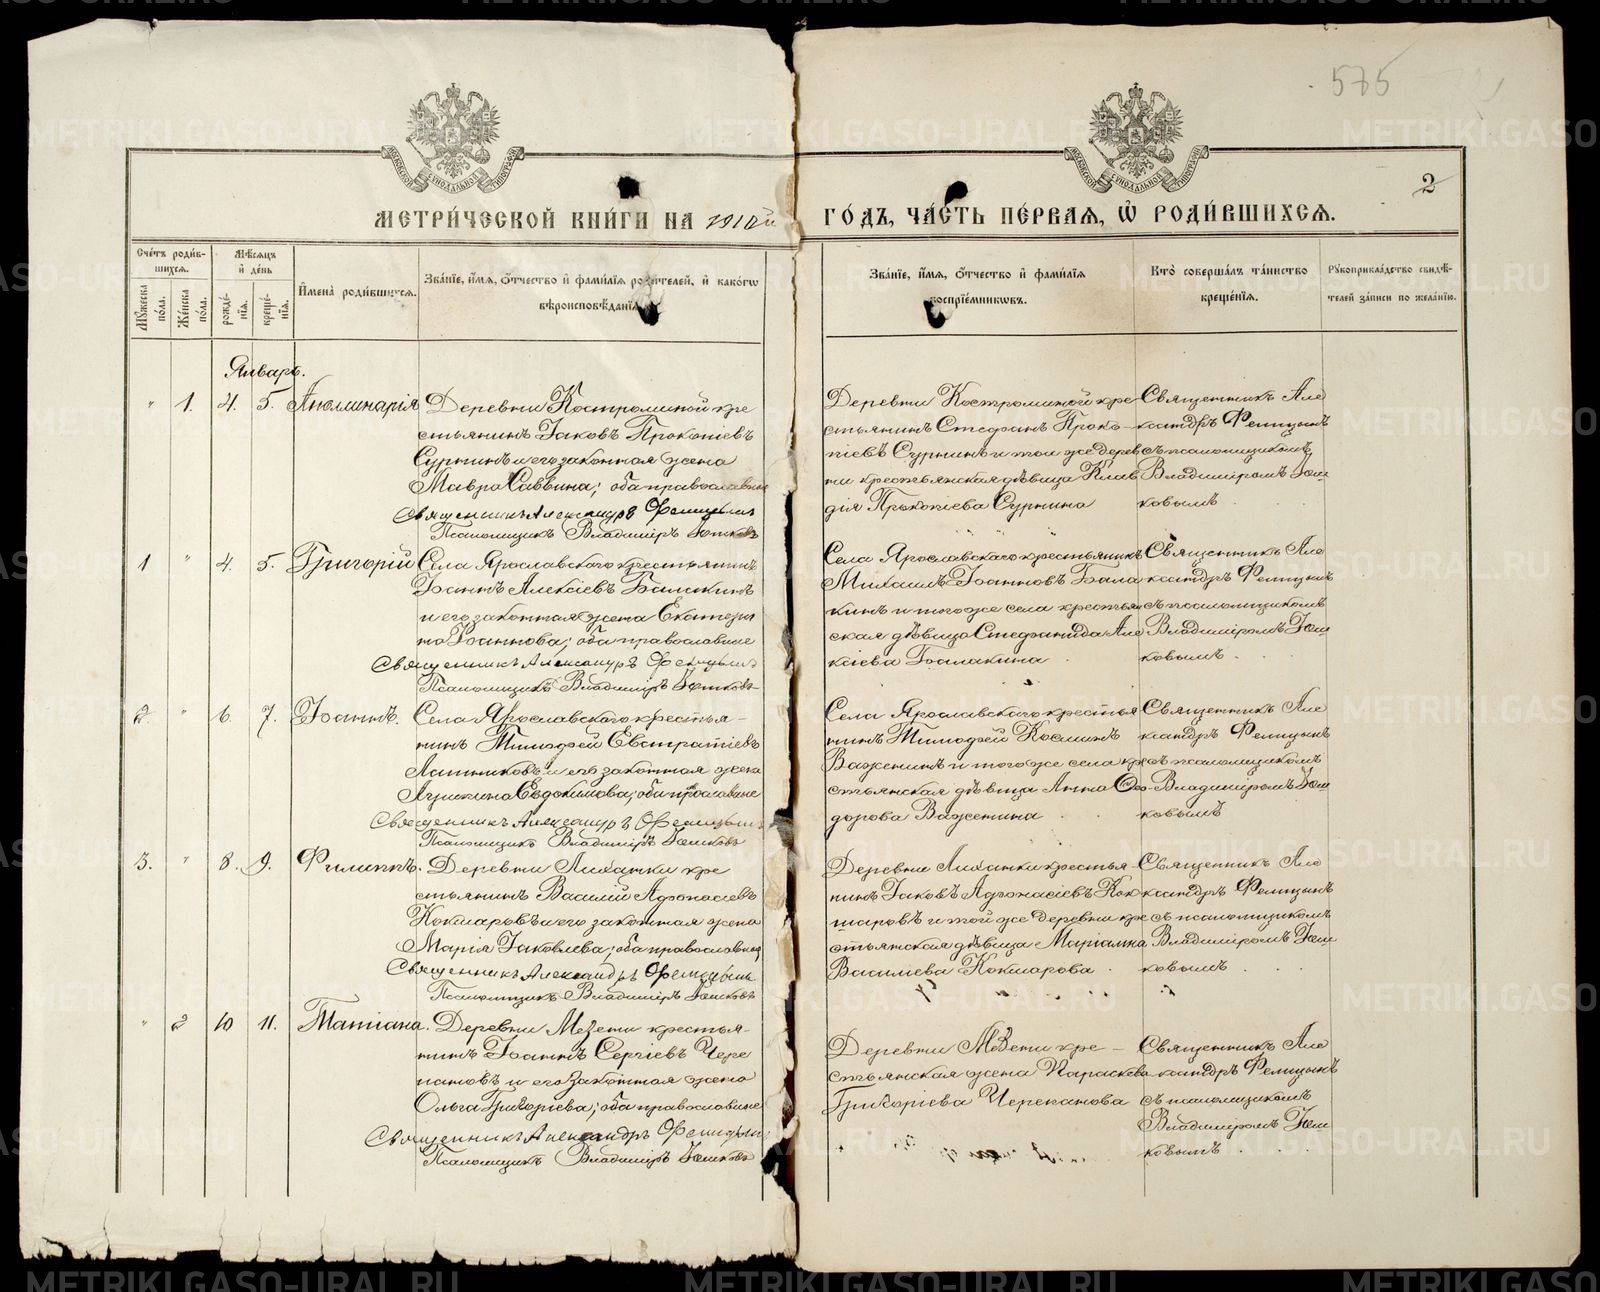 575
2
МОСКОВСКОЙ СѴНОДАЛЬНОЙ ТИПОГРАФІИ
МОСКОВСКОЙ СѴНОДАЛЬНОЙ ТИПОГРАФІИ
МЕТРИ́ЧЕСКОЙ КНИ́ГИ НА 1910й ГО́ДЪ, ЧА́СТЬ ПЕ́РВАЯ, Ѡ҆ РОДИ́ВШИХСЯ.
Сче́тъ роди́вшихся.
Мужеска по́ла.
Же́нска по́ла.
Мѣ́сяцъ и҆ де́нь
рожде́нїя.
креще́нїя.
И҆мена̀ роди́вшихся.
Зва́нїе, и҆́мя, ѻ҆́тчество и҆ фами́лїя роди́телей, и҆ како́гѡ
вѣроисповѣ́данїя
Зва́нїе, и҆́мя, ѻ҆́тчество и҆ фами́лїя
воспрїе́мникѡвъ.
Кто̀ соверша́лъ та́инство
креще́нїя.
Рукоприкла́дство свидѣ́-
телей за́писи по жела́нїю.
Январь.
" 1. 4. 5. Аполлинарія
Деревни Костроминой кре
стьянинъ Іаковъ Прокопіевъ
Суринъ и его законная жена
Мавра Саввина; оба православные
Священникъ Александръ Фелицынъ
Псаломщикъ Владиміръ
Деревни Костроминой кре-
стьянинъ Стефанъ Проко-
піевъ Суринъ и той же дерев
ни крестьянская дѣвица Клав
дія Прокопіева Сурина
Священникъ Але
ксандръ Фелицынъ
съ псаломщикомъ
Владиміромъ
ковымъ
1 " 4. 5. Григорій
Села Ярославскаго крестьянинъ
Іоаннъ Алексіевъ Балакинъ
и его законная жена Екатери
на Іоаннова; оба православные
Священникъ Александръ Фелицынъ
Псаломщикъ Владиміръ
Села Ярославскаго крестьянинъ
Михаилъ Іоанновъ Бала
кинъ и того же села крестьян
ская дѣвица Стефанида Але
ксіева Балакина
Священникъ Але
ксандръ Фелицынъ
съ псаломщикомъ
Владиміромъ
ковымъ
2. " 6. 7. Іоаннъ.
Села Ярославскаго крестья-
нинъ Тимофей Евстратіевъ
и его законная жена
Евдокимова; оба православные
Священникъ Александръ Фелицынъ
Псаломщикъ Владиміръ
Села Ярославскаго крестья
нинъ Тимофей Косминъ
Важенинъ и того же села кре
стьянская дѣвица Анна Ѳео-
дорова Важенина
Священникъ Але
ксандръ Фелицынъ
съ псаломщикомъ
Владиміромъ
ковымъ
3. " 8. 9. Филиппъ.
Деревни кре
стьянинъ Василій Афонасіевъ
Кокшаровъ и его законная жена
Марія Іаковлева; оба православные
Священникъ Александръ Фелицынъ
Псаломщикъ Владиміръ
Деревни крестья-
нинъ Іаковъ Афонасіевъ Кок
шаровъ и той же деревни кре
стьянская дѣвица Маріамна
Василіева Кокшарова
Священникъ Але
ксандръ Фелицынъ
съ псаломщикомъ
Владиміромъ
ковымъ
" 2 10 11. Татіана.
Деревни Мезени крестья-
нинъ Іоаннъ Сергіевъ Чере
пановъ и его законная жена
Ольга Григоріева; оба православные
Священникъ Александръ Фелицынъ
Псаломщикъ Владиміръ
Деревни Мезени кре-
стьянская жена Параскева
Григоріева Черепанова
Священникъ Але
ксандръ Фелицынъ
съ псаломщикомъ
Владиміромъ
ковымъ
METRIKI.GASO-URAL.RU